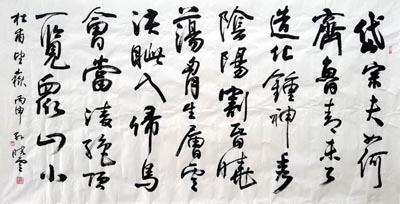 岱宗夫如何
齊魯青未了
造化鍾神秀
陰陽割昏曉
蕩胷生層雲
決眦入歸鳥
會當凌絕頂
一覽眾山小
杜甫望嶽 丙申 孫曉雲